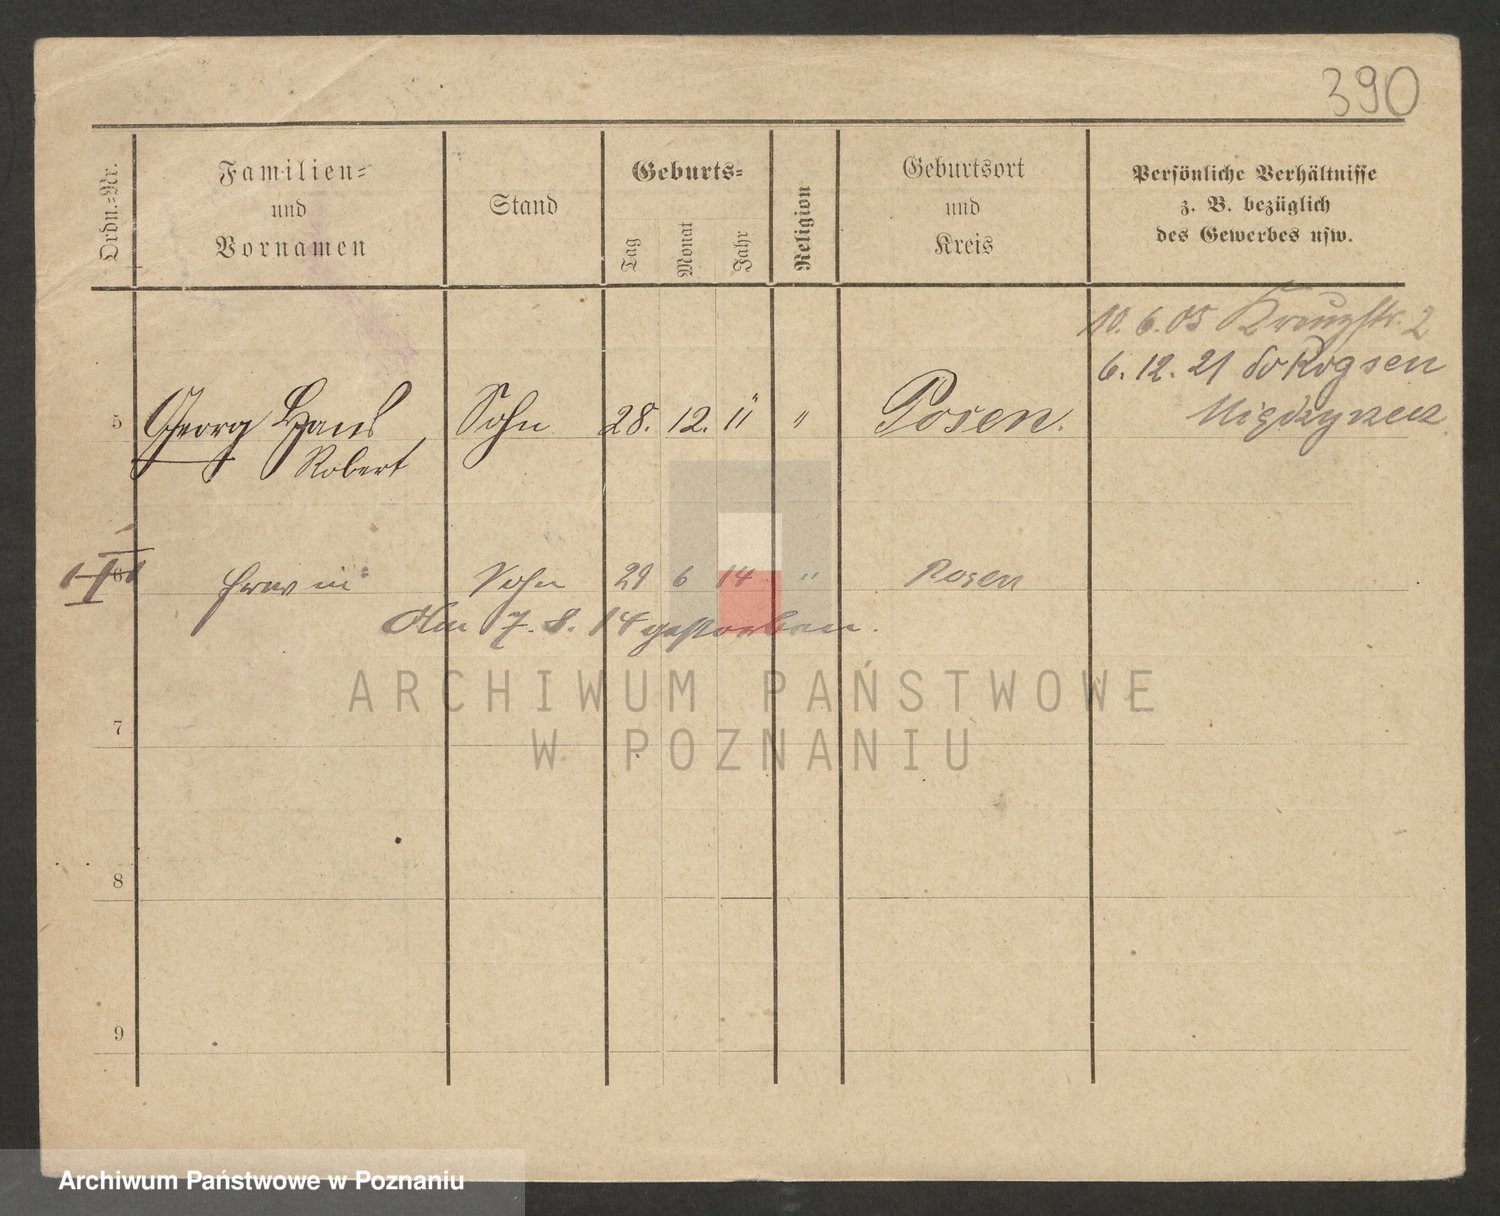 390
Ordn.-Nr.
Familien-
und
Vornamen
Stand
Geburts-
Tag
Monat
Jahr
Religion
Geburtsort
und
Kreis
Persönliche Verhältnisse
z. B. bezüglich
des Gewerbes usw.
10. 6. 05 Kreuzstr. 2
6. 12. 21 do Rogsen
Międzyrzecz
5 Georg Hans Sohn 28. 12. 11 " Posen.
Robert
6 Erwin Sohn 29 6 14 " Posen
Am 7. 8. 14 gestorben.
ARCHIWUM PAŃSTWOWE
W POZNANIU
7
8
9
Archiwum Państwowe w Poznaniu